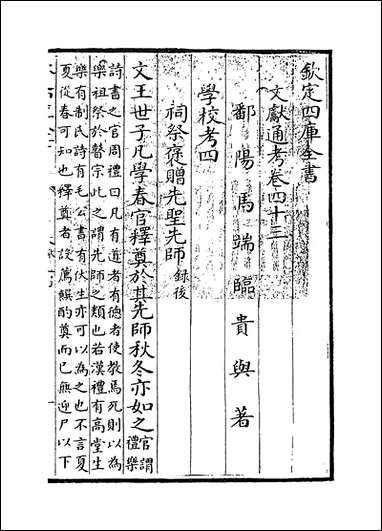 欽定四庫全書
文獻通考卷四十三
鄱陽馬端臨貴與著
學校考四
祠祭褒贈先聖先師錄後
文王世子凡學春官釋奠於其先師秋冬亦如之官謂禮樂
詩書之官周禮曰凡有道者有德者使教焉死則以為
樂祖祭於瞽宗此之謂先師之類也若漢禮有高堂生
樂有制氏詩有毛公書有伏生亦可以為之也不言夏
夏從春可知也釋奠者設薦饌酌奠而已無迎尸以下